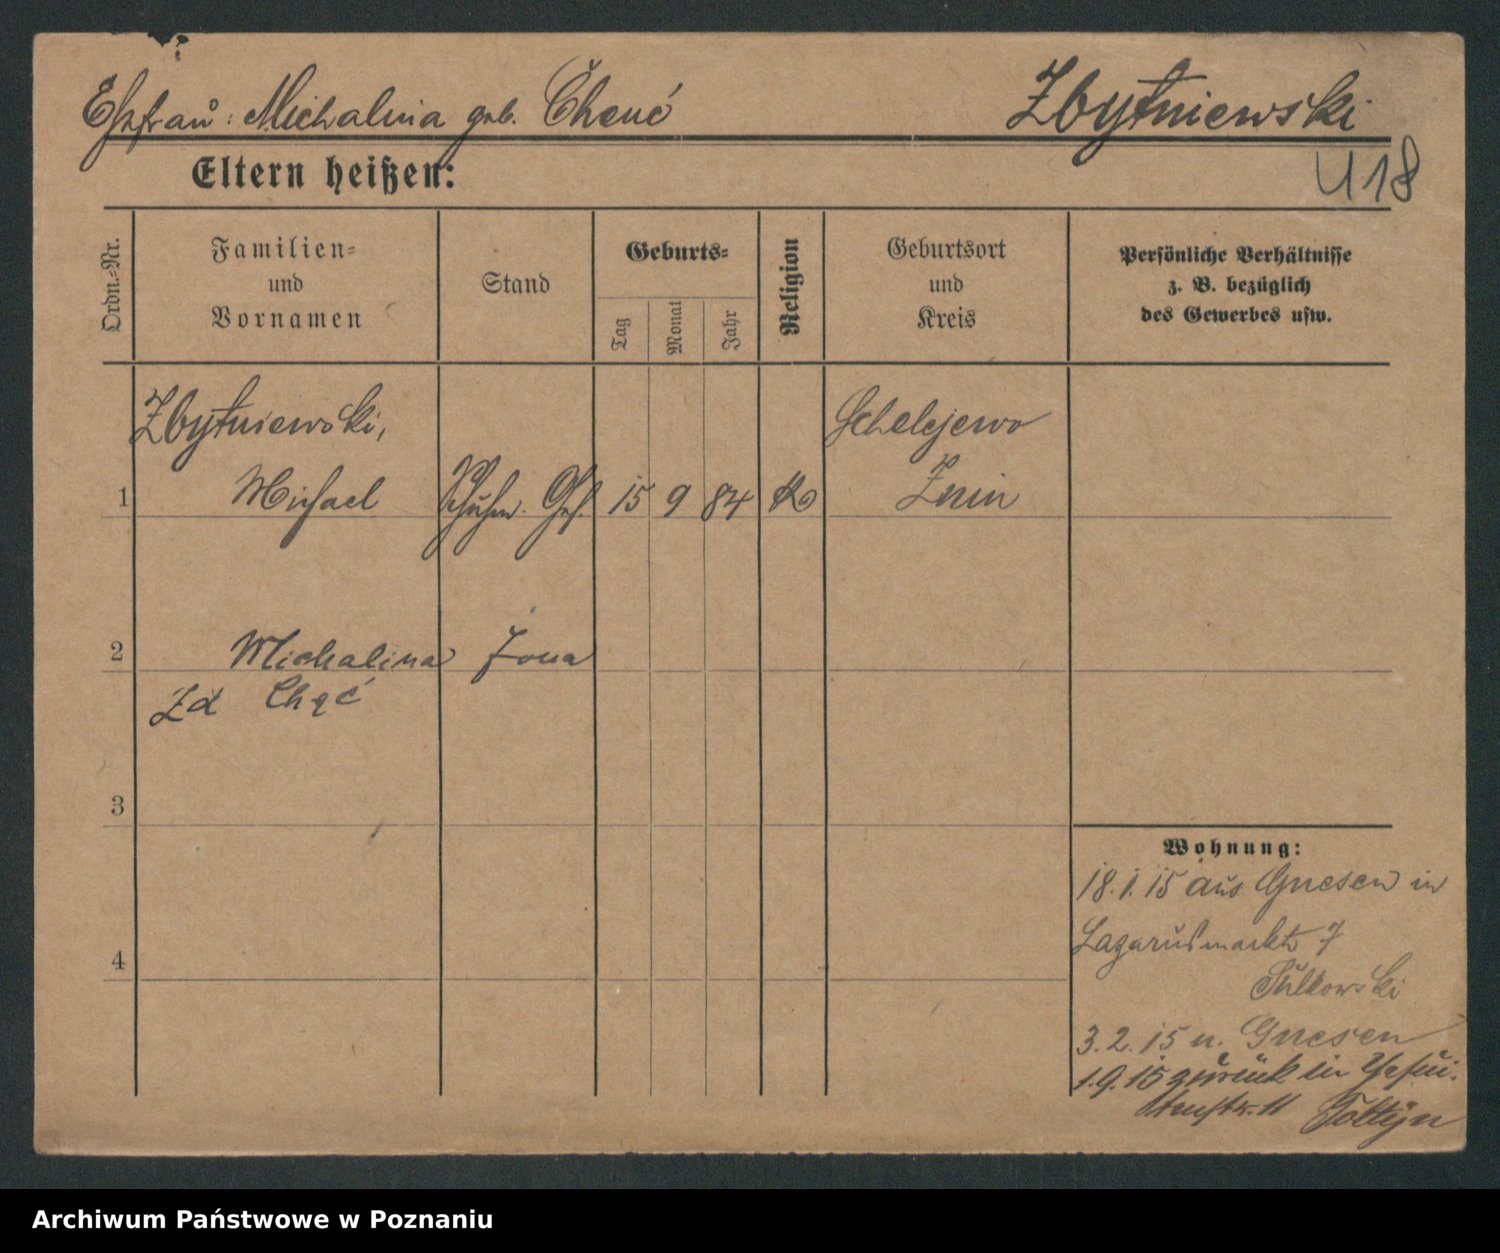 Ehefrau: Michalina geb. Chenć Zbytniewski
Eltern heißen:
U18
Ordn.=Nr.
Familien=
und
Vornamen
Stand
Geburts=
Tag
Monat
Jahr
Religion
Geburtsort
und
Kreis
Persönliche Verhältnisse
z. B. bezüglich
des Gewerbes usw.
Zbytniewski, Schelejewo
1 Michael Schuhm. Ges. 15 9 84 Znin
2 Michalina żona
Zd Chęć
3
Wohnung:
18.1.15 aus Gnesen in
Lazarusmarkt 7
4
Sulkowski
3.2.15 n. Gnesen
1.9.15 zurück in Jesui-
tenstr. 11
Archiwum Państwowe w Poznaniu